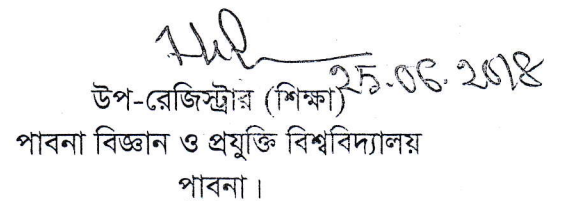 25.06.2018
উপ-রেজিস্ট্রার (শিক্ষা)
পাবনা বিজ্ঞান ও প্রযুক্তি বিশ্ববিদ্যালয়
পাবনা।